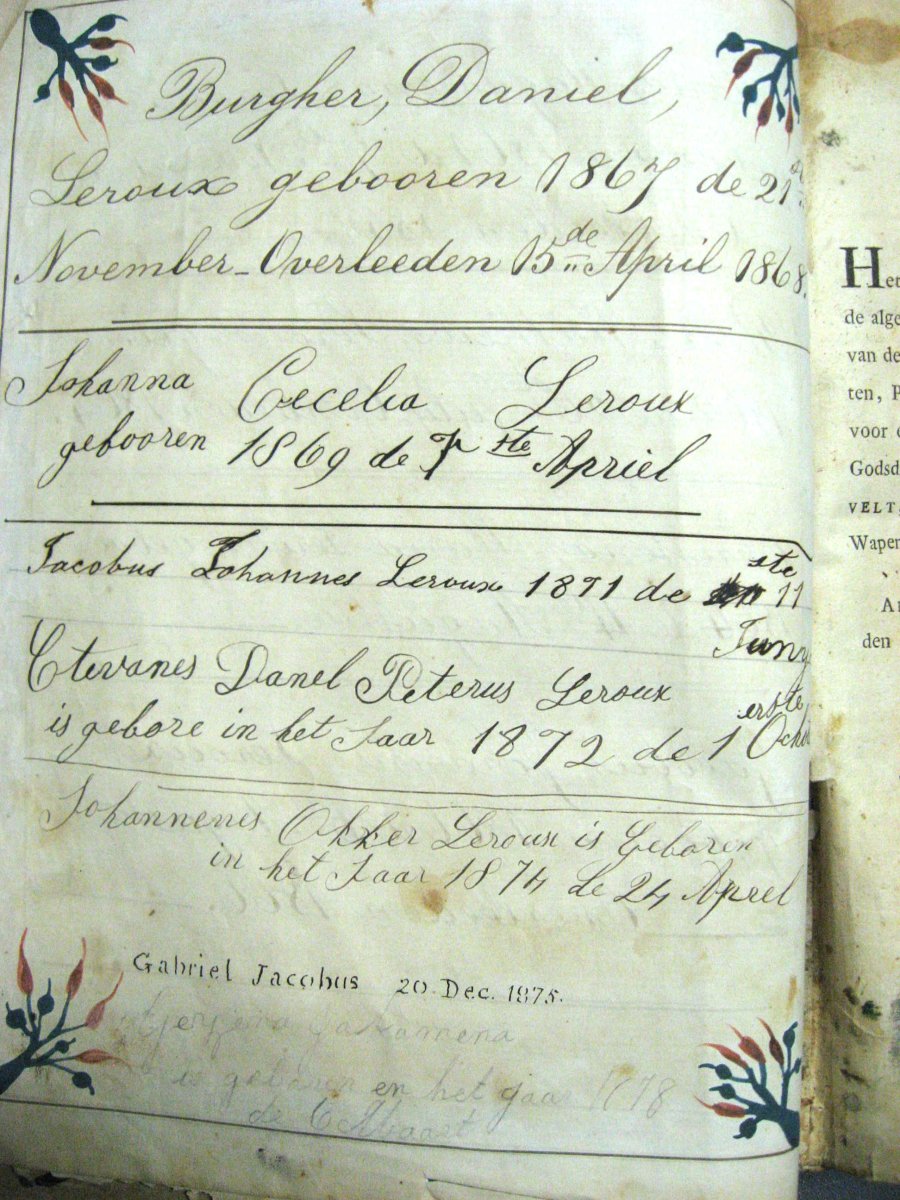 Burgher, Daniel,
Leroux gebooren 1867 de 21
November - Overleeden 15de April 1868.
Johanna Cecelia Leroux
gebooren 1869 de 7 ste Apriel
Jacobus Johannes Leroux 1871 de 11 ste
Juny
Ctevanes Danel Peterus Leroux
is gebore in het Jaar 1872 de 1 erste
Johannenes Okker Leroux is Geboren
in het Jaar 1874 de 24 Aprel
Gabriel Jacobus 20 Dec. 1875.
is geboren en het jaar 1878
de 6 Maart
H
de alge
van de
ten, P
voor
Godsd
VELT,
Wapen
den